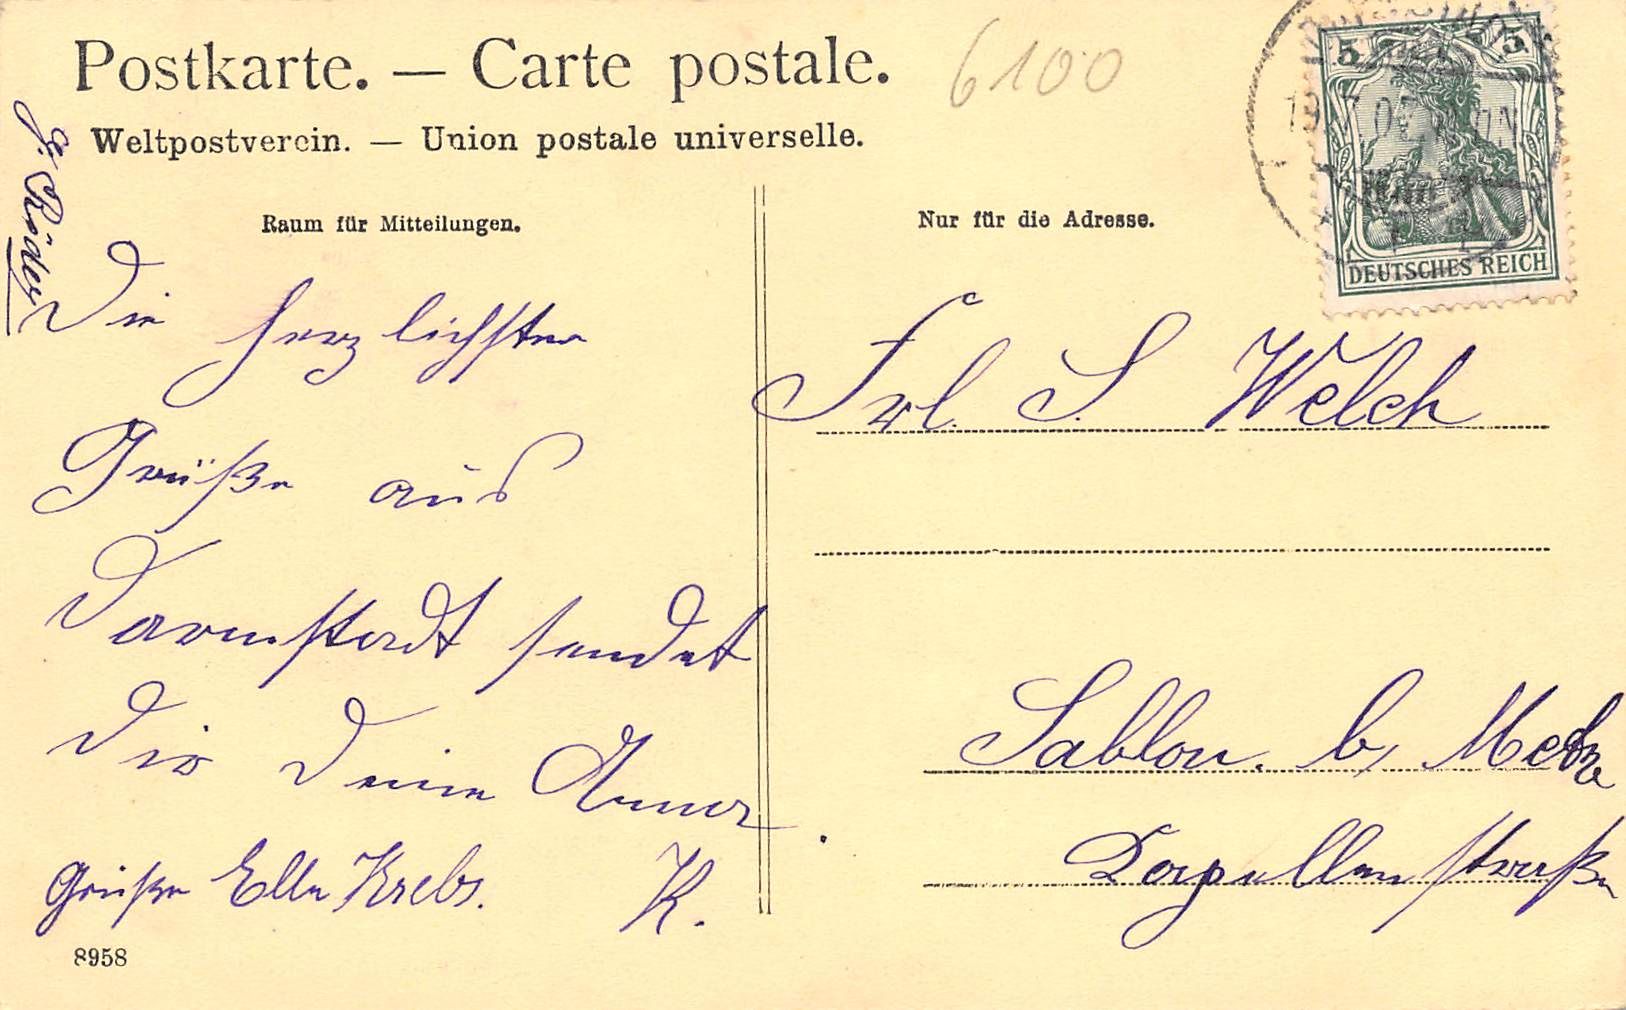 Postkarte. — Carte postale.
6100
Weltpostverein. — Union postale universelle.
Raum für Mitteilungen.
Nur für die Adresse.
5 5
DEUTSCHES REICH
G. Röder
Die herzlichsten
Grüße aus
Darmstadt sendet
Dir Deine Anna
K.
Grüße Elln Krebs.
8958
Frl. S Welch
Sablon. b, Metz
Kapellenstraße